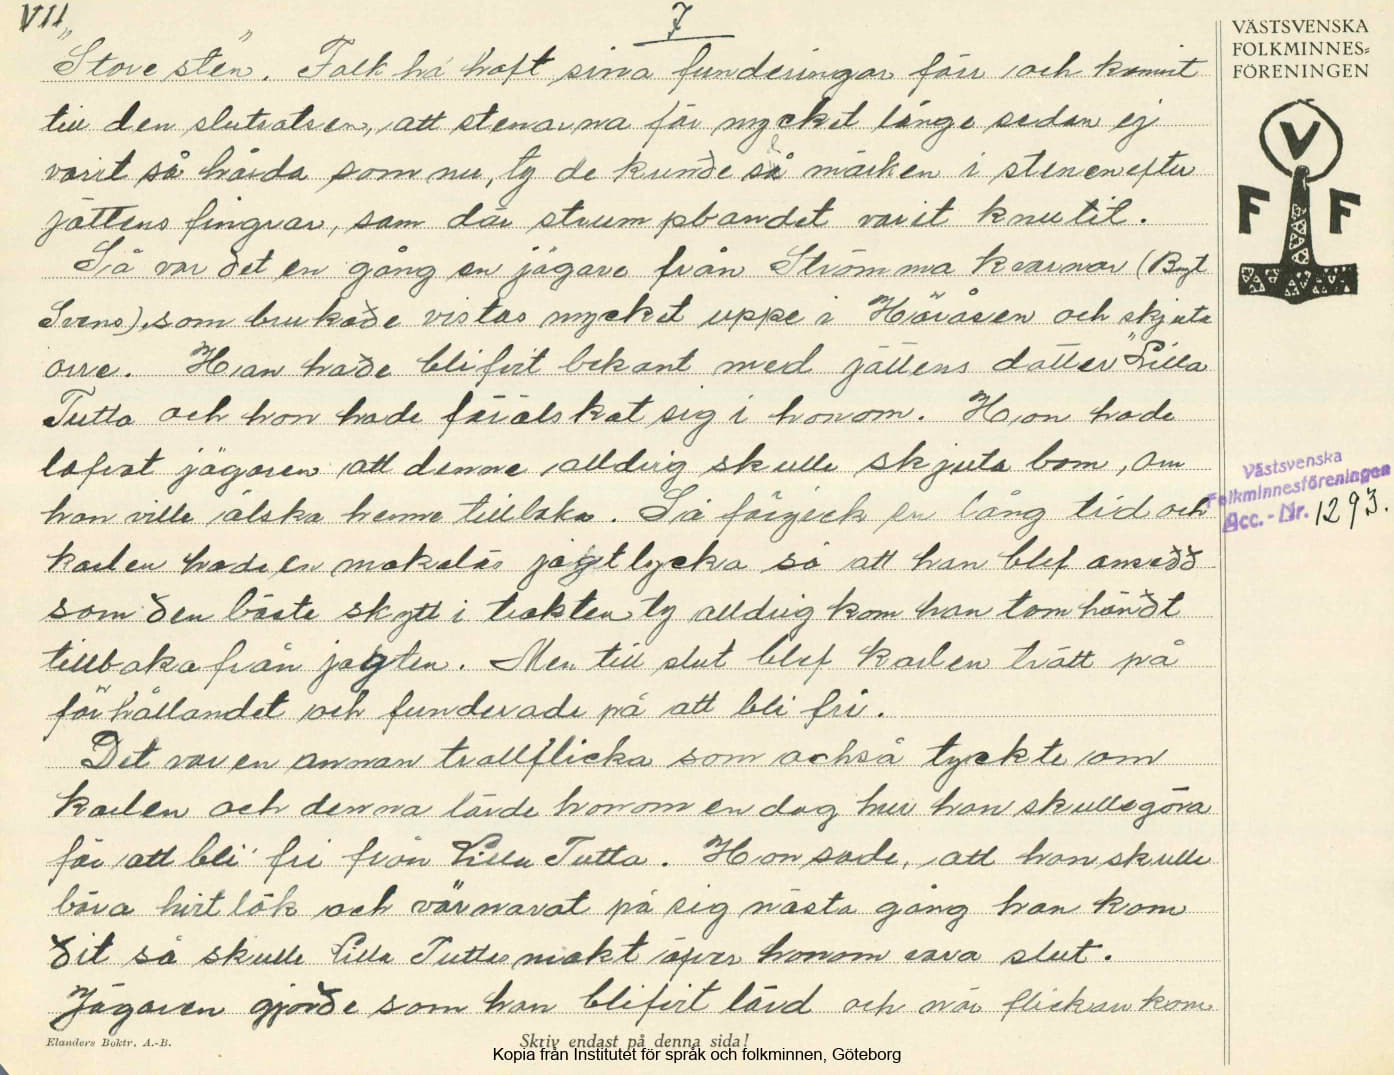 VII
7
VÄSTSVENSKA
FOLKMINNES=
FÖRENINGEN
V
F F
"Stove sten". Folk ha haft sina funderingar förr och kommit
till den slutsatsen, att stenarna för mycket länge sedan ej
varit så hårda som nu, ty de kunde så märken i stenen efter
jättens fingrar, som där strumpbandet varit knutit.
Så var det en gång en jägare från Strömma kvarnar (Bngt
Svens), som brukade vistas mycket uppe i Häråsen och skjuta
orre. Han hade blifvit bekant med jättens dotter "Lilla
Tutta och hon hade förälskat sig i honom. Hon hade
lofvat jägaren att denne alldrig skulle skjuta bom, om
han ville älska henne tillbaka. Så förgick en lång tid och
karlen hade en makalös jagtlycka så att han blef ansedd
som den bäste skytt i trakten ty alldrig kom han tomhändt
tillbaka från jagten. Men till slut blef karlen trött på
förhållandet och funderade på att bli fri.
Det var en annan trollflicka som också tyckte om
karlen och denna lärde honom en dag hur han skulle göra
för att bli fri från Lilla Tutta. Hon sade, att han skulle
bära hvit lök och vänvarat på sig nästa gång han kom
dit så skulle Lilla Tuttas makt öfver honom vara slut.
Jägaren gjorde som han blifvit lärd och när flickan kom
Västsvenska
Folkminnesföreningen
Acc.-Nr. 1293.
Elanders Boktr. A.-B.
Skriv endast på denna sida!
Kopia från Institutet för språk och folkminnen, Göteborg